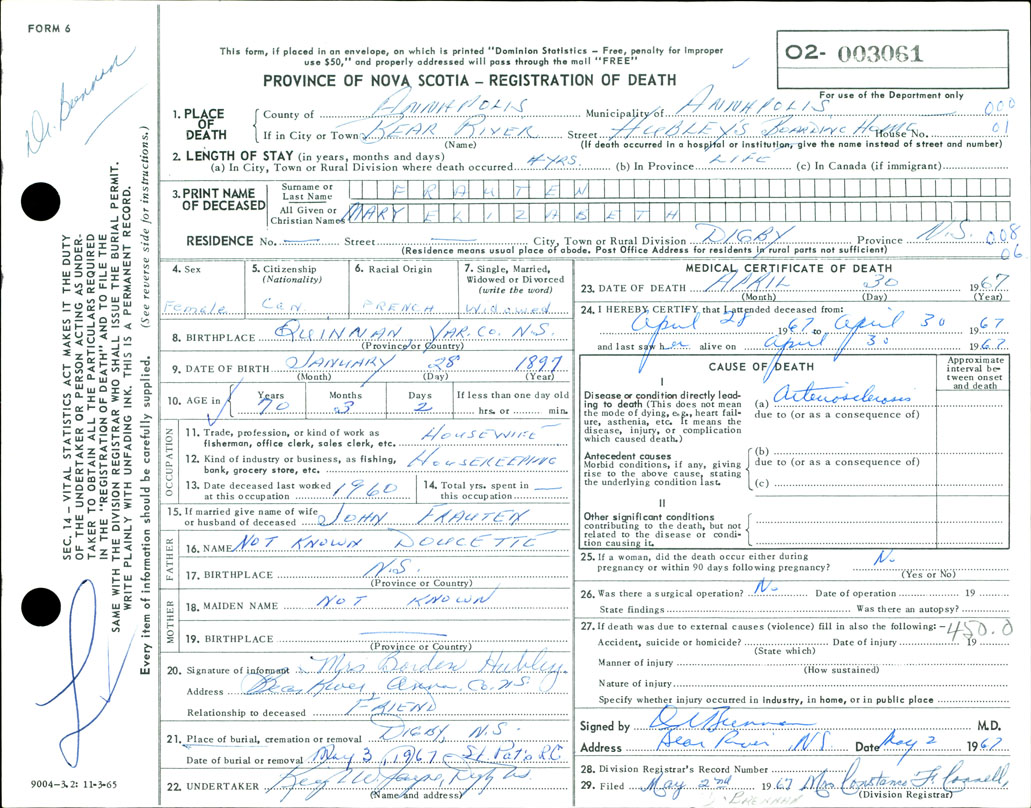 FORM 6
Dr. Brennan
This form, if placed in an envelope, on which is printed "Dominion Statistics – Free, penalty for improper
use $50," and properly addressed will pass through the mail "FREE"
PROVINCE OF NOVA SCOTIA – REGISTRATION OF DEATH
O2- 003061
For use of the Department only
1. PLACE OF DEATH
County of ANNAPOLIS Municipality of ANNAPOLIS 000
If in City or Town BEAR RIVER Street HUBLEY'S BOARDING HOME House No. 01
(Name) (If death occurred in a hospital or institution, give the name instead of street and number)
2. LENGTH OF STAY (in years, months and days)
(a) In City, Town or Rural Division where death occurred 4 YRS. (b) In Province LIFE (c) In Canada (if immigrant)
3. PRINT NAME OF DECEASED
Surname or Last Name FRAUTEN
All Given or Christian Names MARY ELIZABETH
RESIDENCE No. — Street — City, Town or Rural Division DIGBY Province N.S. 008
(Residence means usual place of abode. Post Office Address for residents in rural parts not sufficient) 06
4. Sex Female
5. Citizenship (Nationality) Can
6. Racial Origin FRENCH
7. Single, Married, Widowed or Divorced (write the word) Widowed
8. BIRTHPLACE QUINNAN YAR. CO. N.S.
(Province or Country)
9. DATE OF BIRTH JANUARY 28 1897
(Month) (Day) (Year)
10. AGE in Years 70 Months 3 Days 2 If less than one day old hrs. or min.
OCCUPATION
11. Trade, profession, or kind of work as fisherman, office clerk, sales clerk, etc. HOUSEWIFE
12. Kind of industry or business, as fishing, bank, grocery store, etc. HOUSEKEEPING
13. Date deceased last worked at this occupation 1960
14. Total yrs. spent in this occupation —
15. If married give name of wife or husband of deceased JOHN FRAUTEN
FATHER
16. NAME NOT KNOWN DOUCETTE
17. BIRTHPLACE N.S.
(Province or Country)
MOTHER
18. MAIDEN NAME NOT KNOWN
19. BIRTHPLACE —
(Province or Country)
20. Signature of informant Mrs Borden Hubley
Address Bear River, Anna. Co. N.S.
Relationship to deceased FRIEND
21. Place of burial, cremation or removal DIGBY N.S.
Date of burial or removal May 3, 1967 St Pat's R.C.
22. UNDERTAKER
(Name and address)
MEDICAL CERTIFICATE OF DEATH
23. DATE OF DEATH APRIL 30 1967
(Month) (Day) (Year)
24. I HEREBY CERTIFY that I attended deceased from:
April 28 1967 to April 30 1967
and last saw her alive on April 30 1967
CAUSE OF DEATH
Approximate interval between onset and death
I
Disease or condition directly leading to death (This does not mean the mode of dying, e.g., heart failure, asthenia, etc. It means the disease, injury, or complication which caused death.)
(a) Arteriosclerosis
due to (or as a consequence of)
Antecedent causes
Morbid conditions, if any, giving rise to the above cause, stating the underlying condition last.
(b)
due to (or as a consequence of)
(c)
II
Other significant conditions
contributing to the death, but not related to the disease or condition causing it.
25. If a woman, did the death occur either during pregnancy or within 90 days following pregnancy? No
(Yes or No)
26. Was there a surgical operation? No Date of operation 19
State findings Was there an autopsy?
27. If death was due to external causes (violence) fill in also the following: 450.0
Accident, suicide or homicide? Date of injury 19
(State which)
Manner of injury
(How sustained)
Nature of injury
Specify whether injury occurred in industry, in home, or in public place
Signed by Brennan M.D.
Address Bear River N.S. Date May 2 1967
28. Division Registrar's Record Number
29. Filed May 2nd 1967 Mrs Constance F. Connell,
(Division Registrar)
BRENNAN
SEC. 14 – VITAL STATISTICS ACT MAKES IT THE DUTY
OF THE UNDERTAKER OR PERSON ACTING AS UNDER-
TAKER TO OBTAIN ALL THE PARTICULARS REQUIRED
IN THE "REGISTRATION OF DEATH" AND TO FILE THE
SAME WITH THE DIVISION REGISTRAR WHO SHALL ISSUE THE BURIAL PERMIT.
WRITE PLAINLY WITH UNFADING INK. THIS IS A PERMANENT RECORD.
Every item of information should be carefully supplied. (See reverse side for instructions.)
9004–3.2: 11-3-65